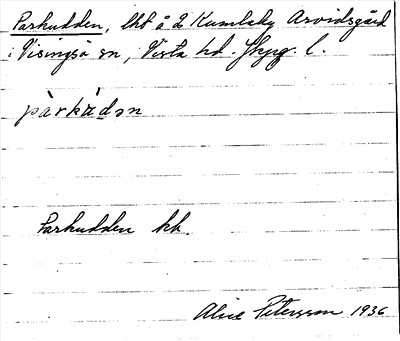 Parkudden, lht å 2 Kumlaby Arvidsgård
i Visingsö sn, Vista hd. Jkpg. l.
pàrkùdən
Parkudden kk.
Alice Petersson 1936